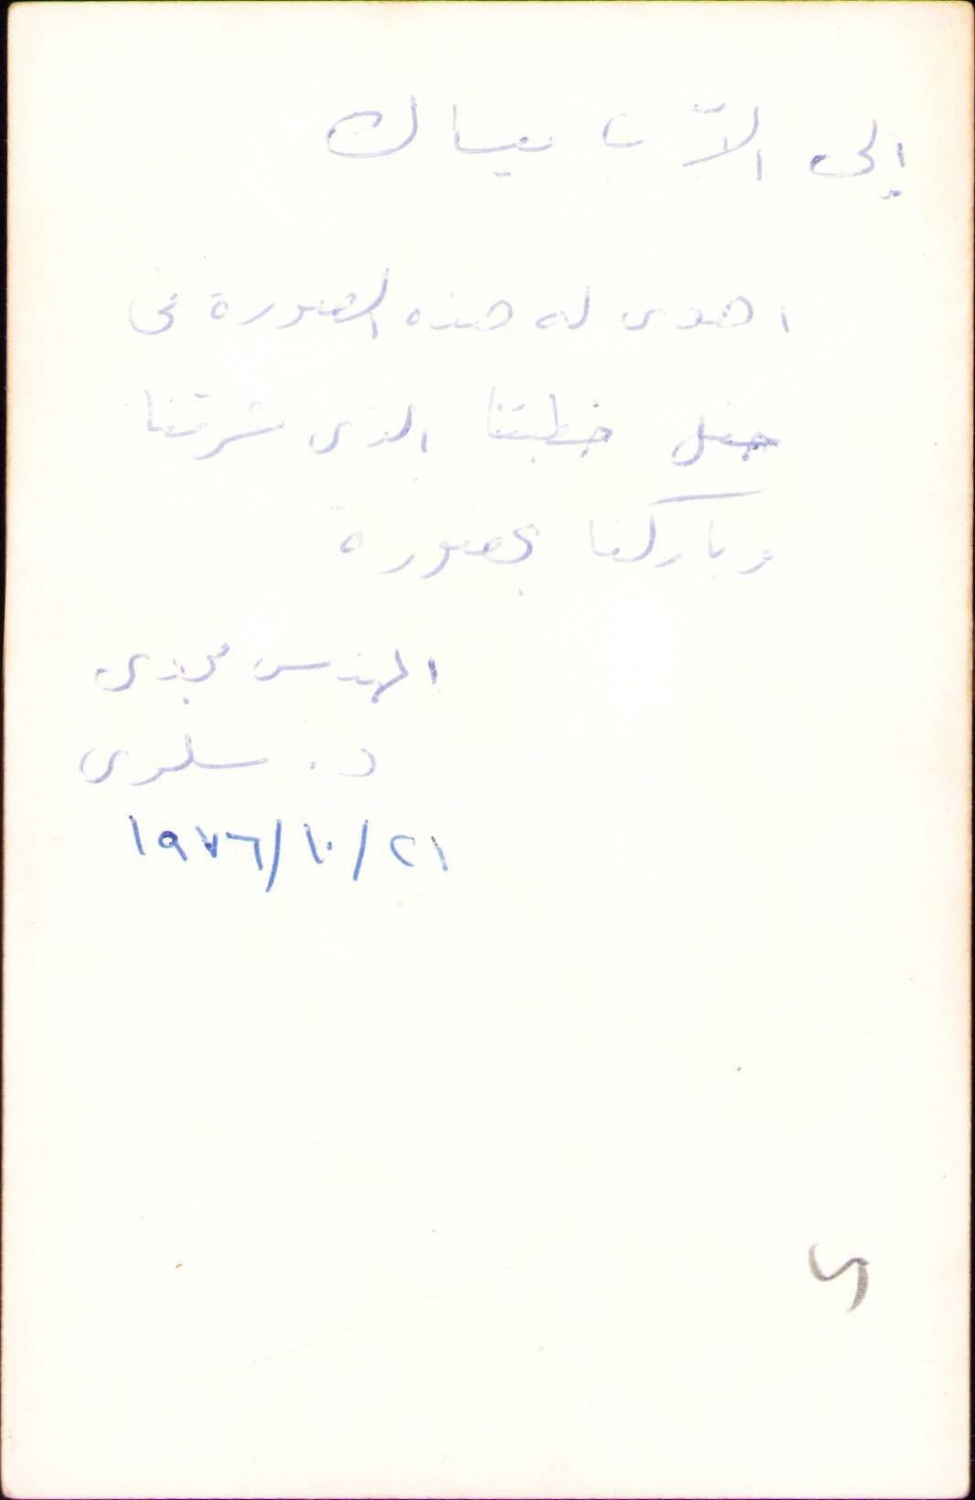 إلى الآب بيساك
اهدى له هذه الصورة فى
حفل خطبتنا الذى شرفنا
وباركنا بحضورة
المهندس مجدى
د. سلوى
٢١/١٠/١٩٧٦